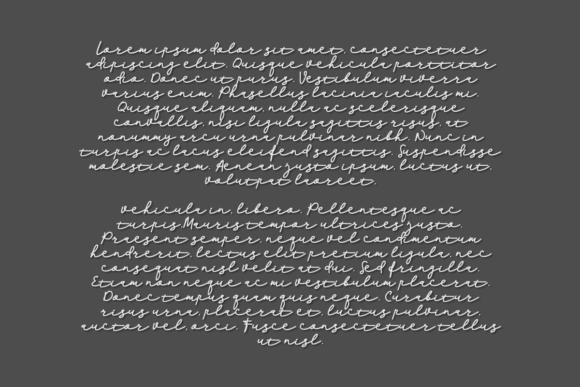 Lorem ipsum dolor sit amet, consectetuer
adipiscing elit. Quisque vehicula porttitor
odio. Donec ut purus. Vestibulum viverra
varius enim. Phasellus lacinia iaculis mi.
Quisque aliquam, nulla ac scelerisque
convallis, nisi ligula sagittis risus, at
nonummy arcu urna pulvinar nibh. Nunc in
turpis ac lacus eleifend sagittis. Suspendisse
molestie sem. Aenean justo ipsum, luctus ut,
volutpat laoreet,
vehicula in, libero. Pellentesque ac
turpis.Mauris tempor ultrices justo.
Praesent semper, neque vel condimentum
hendrerit, lectus elit pretium ligula, nec
consequat nisl velit at dui. Sed fringilla.
Etiam non neque ac mi vestibulum placerat.
Donec tempus quam quis neque. Curabitur
risus urna, placerat et, luctus pulvinar,
auctor vel, orci. Fusce consectetuer tellus
ut nisl.